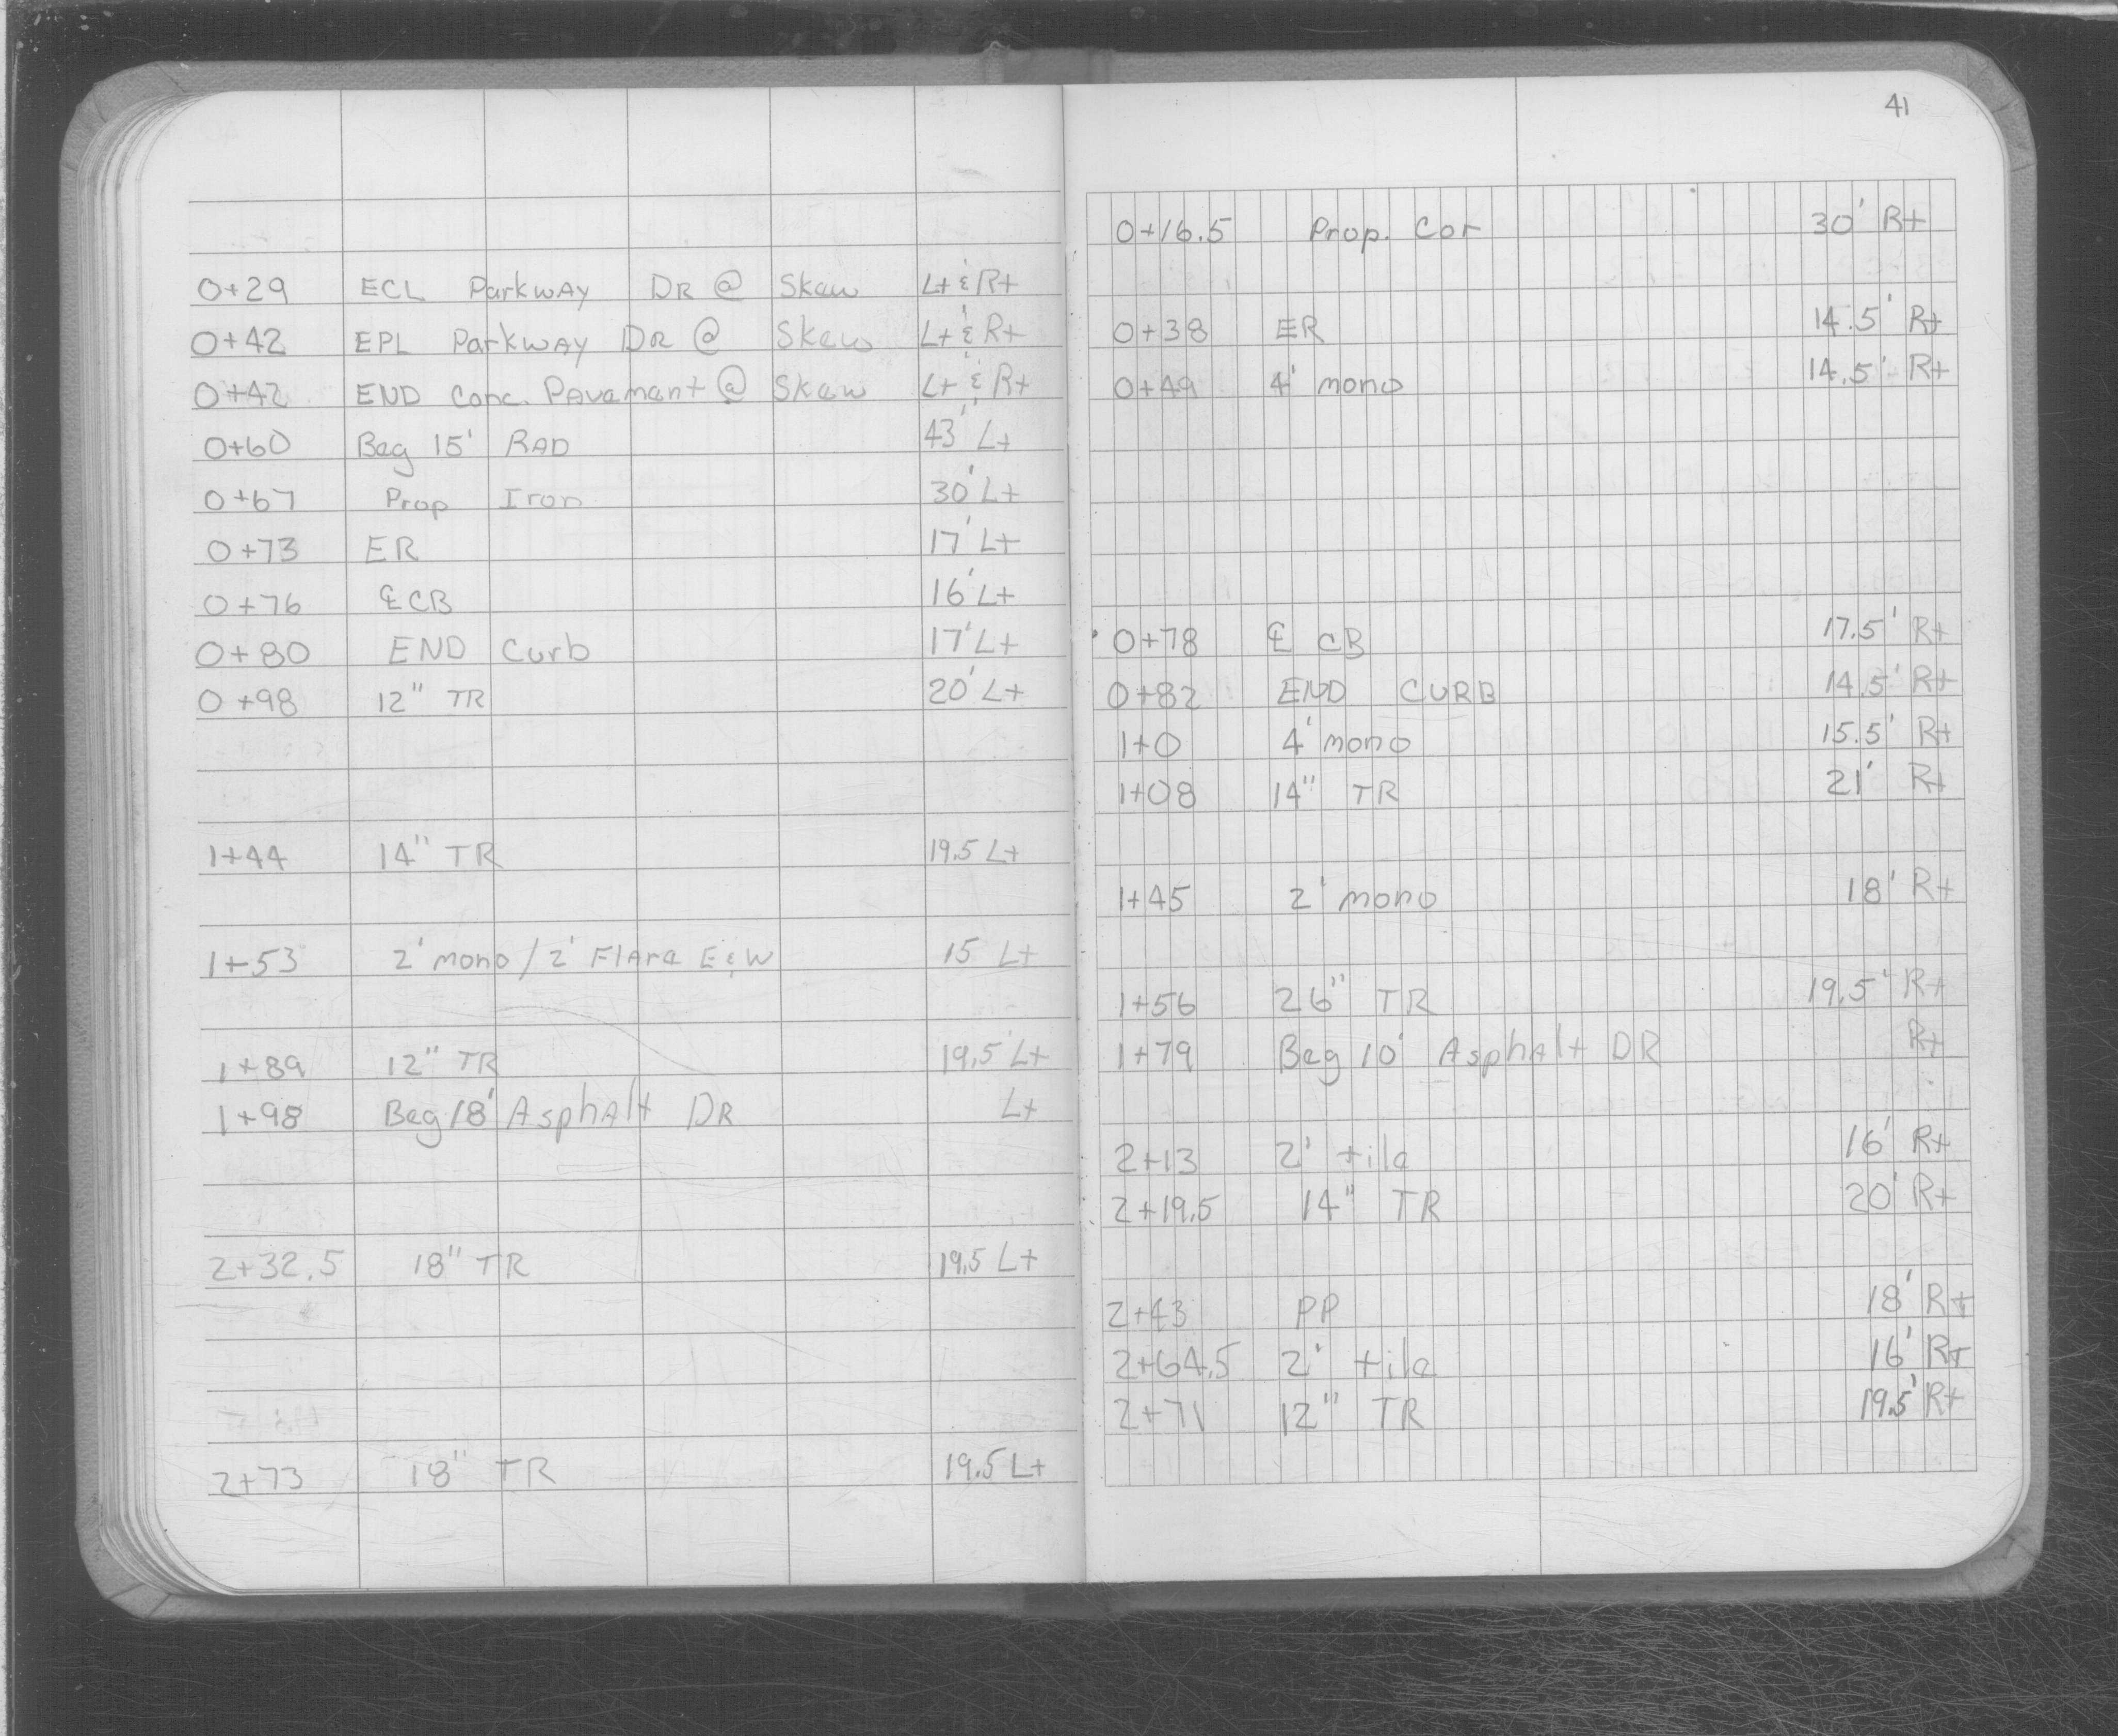 0+29 ECL Parkway DR @ Skew Lt & Rt
0+42 EPL Parkway DR @ Skew Lt & Rt
0+42 END Conc. Pavement @ Skew Lt & Rt
0+60 Beg 15' RAD 43' Lt
0+67 Prop Iron 30' Lt
0+73 ER 17' Lt
0+76 ℄ CB 16' Lt
0+80 END Curb 17' Lt
0+98 12" TR 20' Lt
1+44 14" TR 19.5 Lt
1+53 2' mono / 2' Flare E & W 15 Lt
1+89 12" TR 19.5' Lt
1+98 Beg 18' Asphalt DR Lt
2+32.5 18" TR 19.5 Lt
2+73 18" TR 19.5 Lt
41
0+16.5 Prop. Cor 30' Rt
0+38 ER 14.5' Rt
0+49 4' mono 14.5' Rt
0+78 ℄ CB 17.5' Rt
0+82 END CURB 14.5' Rt
1+0 4' mono 15.5' Rt
1+08 14" TR 21' Rt
1+45 2' mono 18' Rt
1+56 26" TR 19.5' Rt
1+79 Beg 10' Asphalt DR Rt
2+13 2' tile 16' Rt
2+19.5 14" TR 20' Rt
2+43 PP 18' Rt
2+64.5 2' tile 16' Rt
2+71 12" TR 19.5' Rt